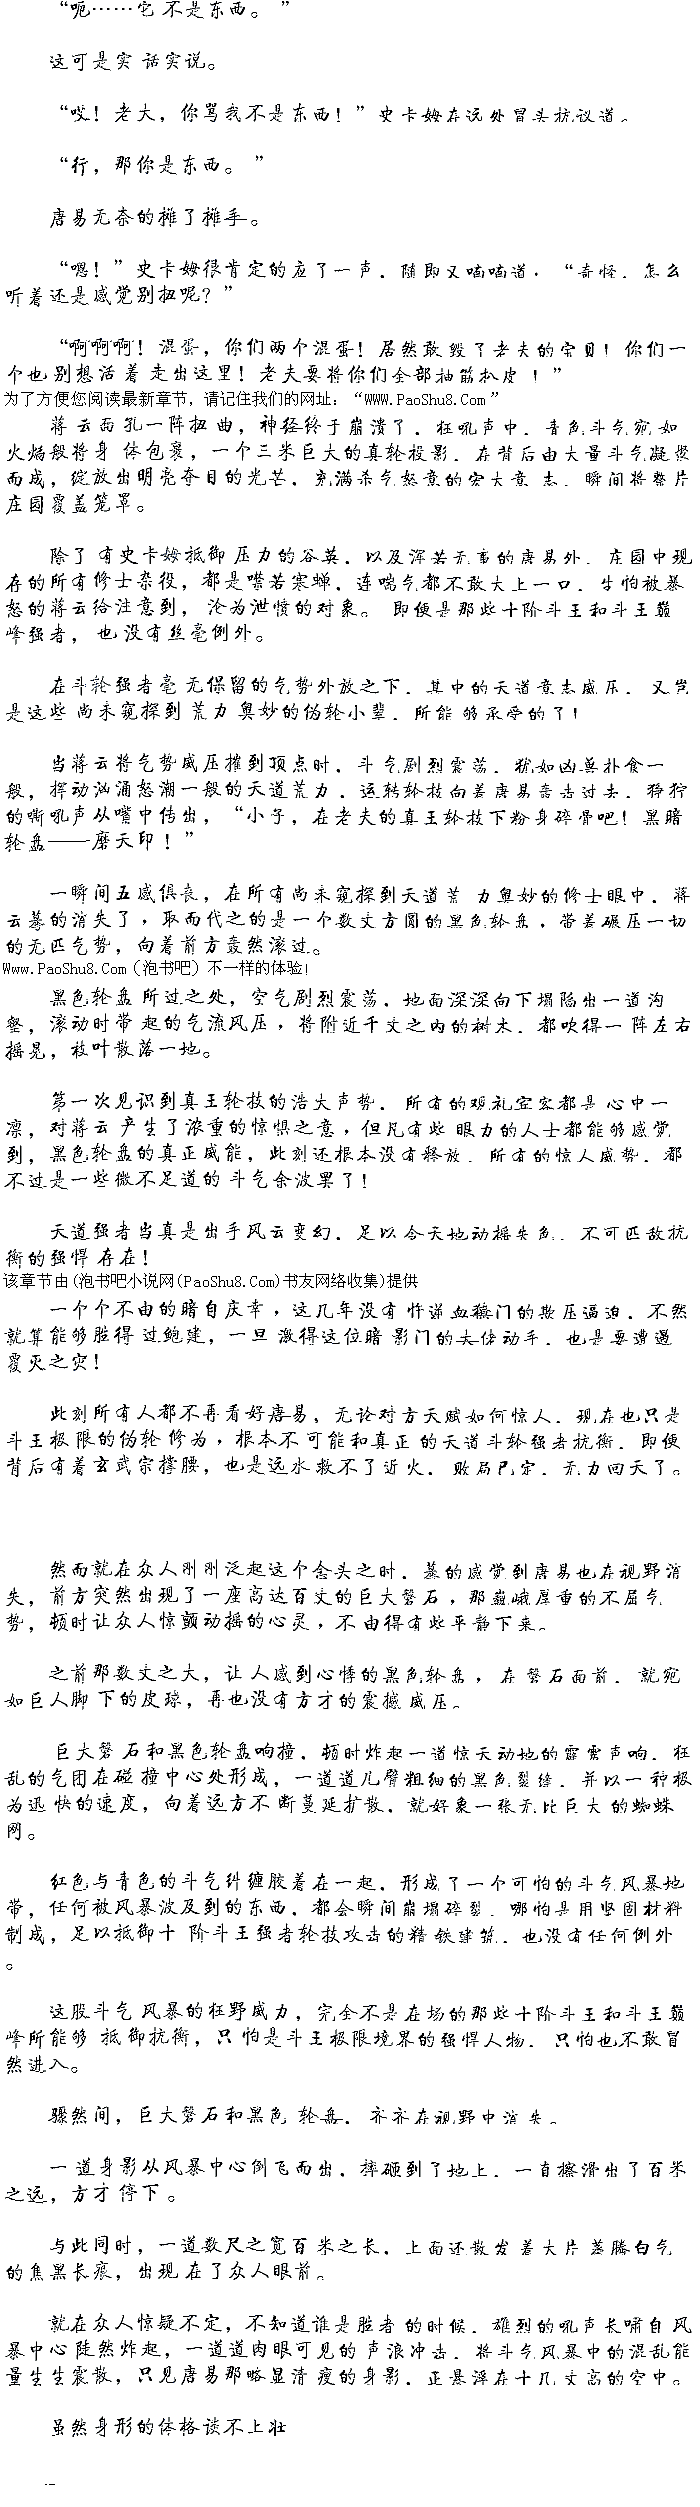 “呃……它不是东西。”
这可是实话实说。
“哎！老大，你骂我不是东西！”史卡姆在远处冒头抗议道。
“行，那你是东西。”
唐易无奈的摊了摊手。
“嗯！”史卡姆很肯定的应了一声，随即又喃喃道，“奇怪，怎么
听着还是感觉别扭呢？”
“啊啊啊！混蛋，你们两个混蛋！居然敢毁了老夫的宝贝！你们一
个也别想活着走出这里！老夫要将你们全部抽筋扒皮！”
为了方便您阅读最新章节，请记住我们的网址：“Www.PaoShu8.Com”
蒋云面孔一阵扭曲，神经终于崩溃了，狂吼声中，青色斗气宛如
火焰般将身体包裹，一个三米巨大的真轮投影，在背后由大量斗气凝聚
而成，绽放出明亮夺目的光芒，充满杀气怒意的宏大意志，瞬间将整片
庄园覆盖笼罩。
除了有史卡姆抵御压力的谷英，以及浑若无事的唐易外，庄园中现
存的所有修士杂役，都是噤若寒蝉，连喘气都不敢大上一口，生怕被暴
怒的蒋云给注意到，沦为泄愤的对象。即便是那些十阶斗王和斗王巅
峰强者，也没有丝毫例外。
在斗轮强者毫无保留的气势外放之下，其中的天道意志威压，又岂
是这些尚未窥探到荒力奥妙的伪轮小辈，所能够承受的了！
当蒋云将气势威压摧到顶点时，斗气剧烈震荡，犹如凶兽扑食一
般，挥动汹涌怒潮一般的天道荒力，运转轮技向着唐易轰击过去，狰狞
的嘶吼声从嘴中传出，“小子，在老夫的真王轮技下粉身碎骨吧！黑暗
轮盘——磨天印！”
一瞬间五感俱丧，在所有尚未窥探到天道荒力奥妙的修士眼中，蒋
云蓦的消失了，取而代之的是一个数丈方圆的黑色轮盘，带着碾压一切
的无匹气势，向着前方轰然滚过。
Www.PaoShu8.Com（泡书吧）不一样的体验!
黑色轮盘所过之处，空气剧烈震荡，地面深深向下塌陷出一道沟
壑，滚动时带起的气流风压，将附近千丈之内的树木，都吹得一阵左右
摇晃，枝叶散落一地。
第一次见识到真王轮技的浩大声势，所有的观礼宾客都是心中一
凛，对蒋云产生了浓重的惊惧之意，但凡有些眼力的人士都能够感觉
到，黑色轮盘的真正威能，此刻还根本没有释放，所有的惊人威势，都
不过是一些微不足道的斗气余波罢了！
天道强者当真是出手风云变幻，足以令天地动摇失色，不可匹敌抗
衡的强悍存在！
该章节由(泡书吧小说网(PaoShu8.Com)书友网络收集)提供
一个个不由的暗自庆幸，这几年没有忤逆血狱门的欺压逼迫，不然
就算能够胜得过鲍建，一旦激得这位暗影门的大佬动手，也是要遭遇
覆灭之灾！
此刻所有人都不再看好唐易，无论对方天赋如何惊人，现在也只是
斗王极限的伪轮修为，根本不可能和真正的天道斗轮强者抗衡，即便
背后有着玄武宗撑腰，也是远水救不了近火，败局已定，无力回天了。
然而就在众人刚刚泛起这个念头之时，蓦的感觉到唐易也在视野消
失，前方突然出现了一座高达百丈的巨大磐石，那巍峨厚重的不屈气
势，顿时让众人惊颤动摇的心灵，不由得有些平静下来。
之前那数丈之大，让人感到心悸的黑色轮盘，在磐石面前，就宛
如巨人脚下的皮球，再也没有方才的震撼威压。
巨大磐石和黑色轮盘响撞，顿时炸起一道惊天动地的霹雳声响，狂
乱的气团在碰撞中心处形成，一道道儿臂粗细的黑色裂缝，并以一种极
为迅快的速度，向着远方不断蔓延扩散，就好象一张无比巨大的蜘蛛
网。
红色与青色的斗气纠缠胶着在一起，形成了一个可怕的斗气风暴地
带，任何被风暴波及到的东西，都会瞬间崩塌碎裂，哪怕是用坚固材料
制成，足以抵御十阶斗王强者轮技攻击的精铁建筑，也没有任何例外
。
这股斗气风暴的狂野威力，完全不是在场的那些十阶斗王和斗王巅
峰所能够抵御抗衡，只怕是斗王极限境界的强悍人物，只怕也不敢冒
然进入。
骤然间，巨大磐石和黑色轮盘，齐齐在视野中消失。
一道身影从风暴中心倒飞而出，摔砸到了地上，一直擦滑出了百米
之远，方才停下。
与此同时，一道数尺之宽百米之长，上面还散发着大片蒸腾白气
的焦黑长痕，出现在了众人眼前。
就在众人惊疑不定，不知道谁是胜者的时候，雄烈的吼声长啸自风
暴中心陡然炸起，一道道肉眼可见的声浪冲击，将斗气风暴中的混乱能
量生生震散，只见唐易那略显清瘦的身影，正悬浮在十几丈高的空中。
虽然身形的体格谈不上壮